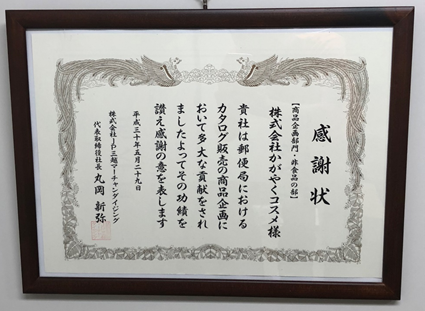 感謝状
【商品企画部門・非食品の部】
株式会社かがやくコスメ様
貴社は郵便局における
カタログ販売の商品企画に
おいて多大な貢献をされ
ましたよってその功績を
讃え感謝の意を表します
平成三十年五月二十九日
株式会社JP三越マーチャンダイジング
代表取締役社長 丸岡 新弥